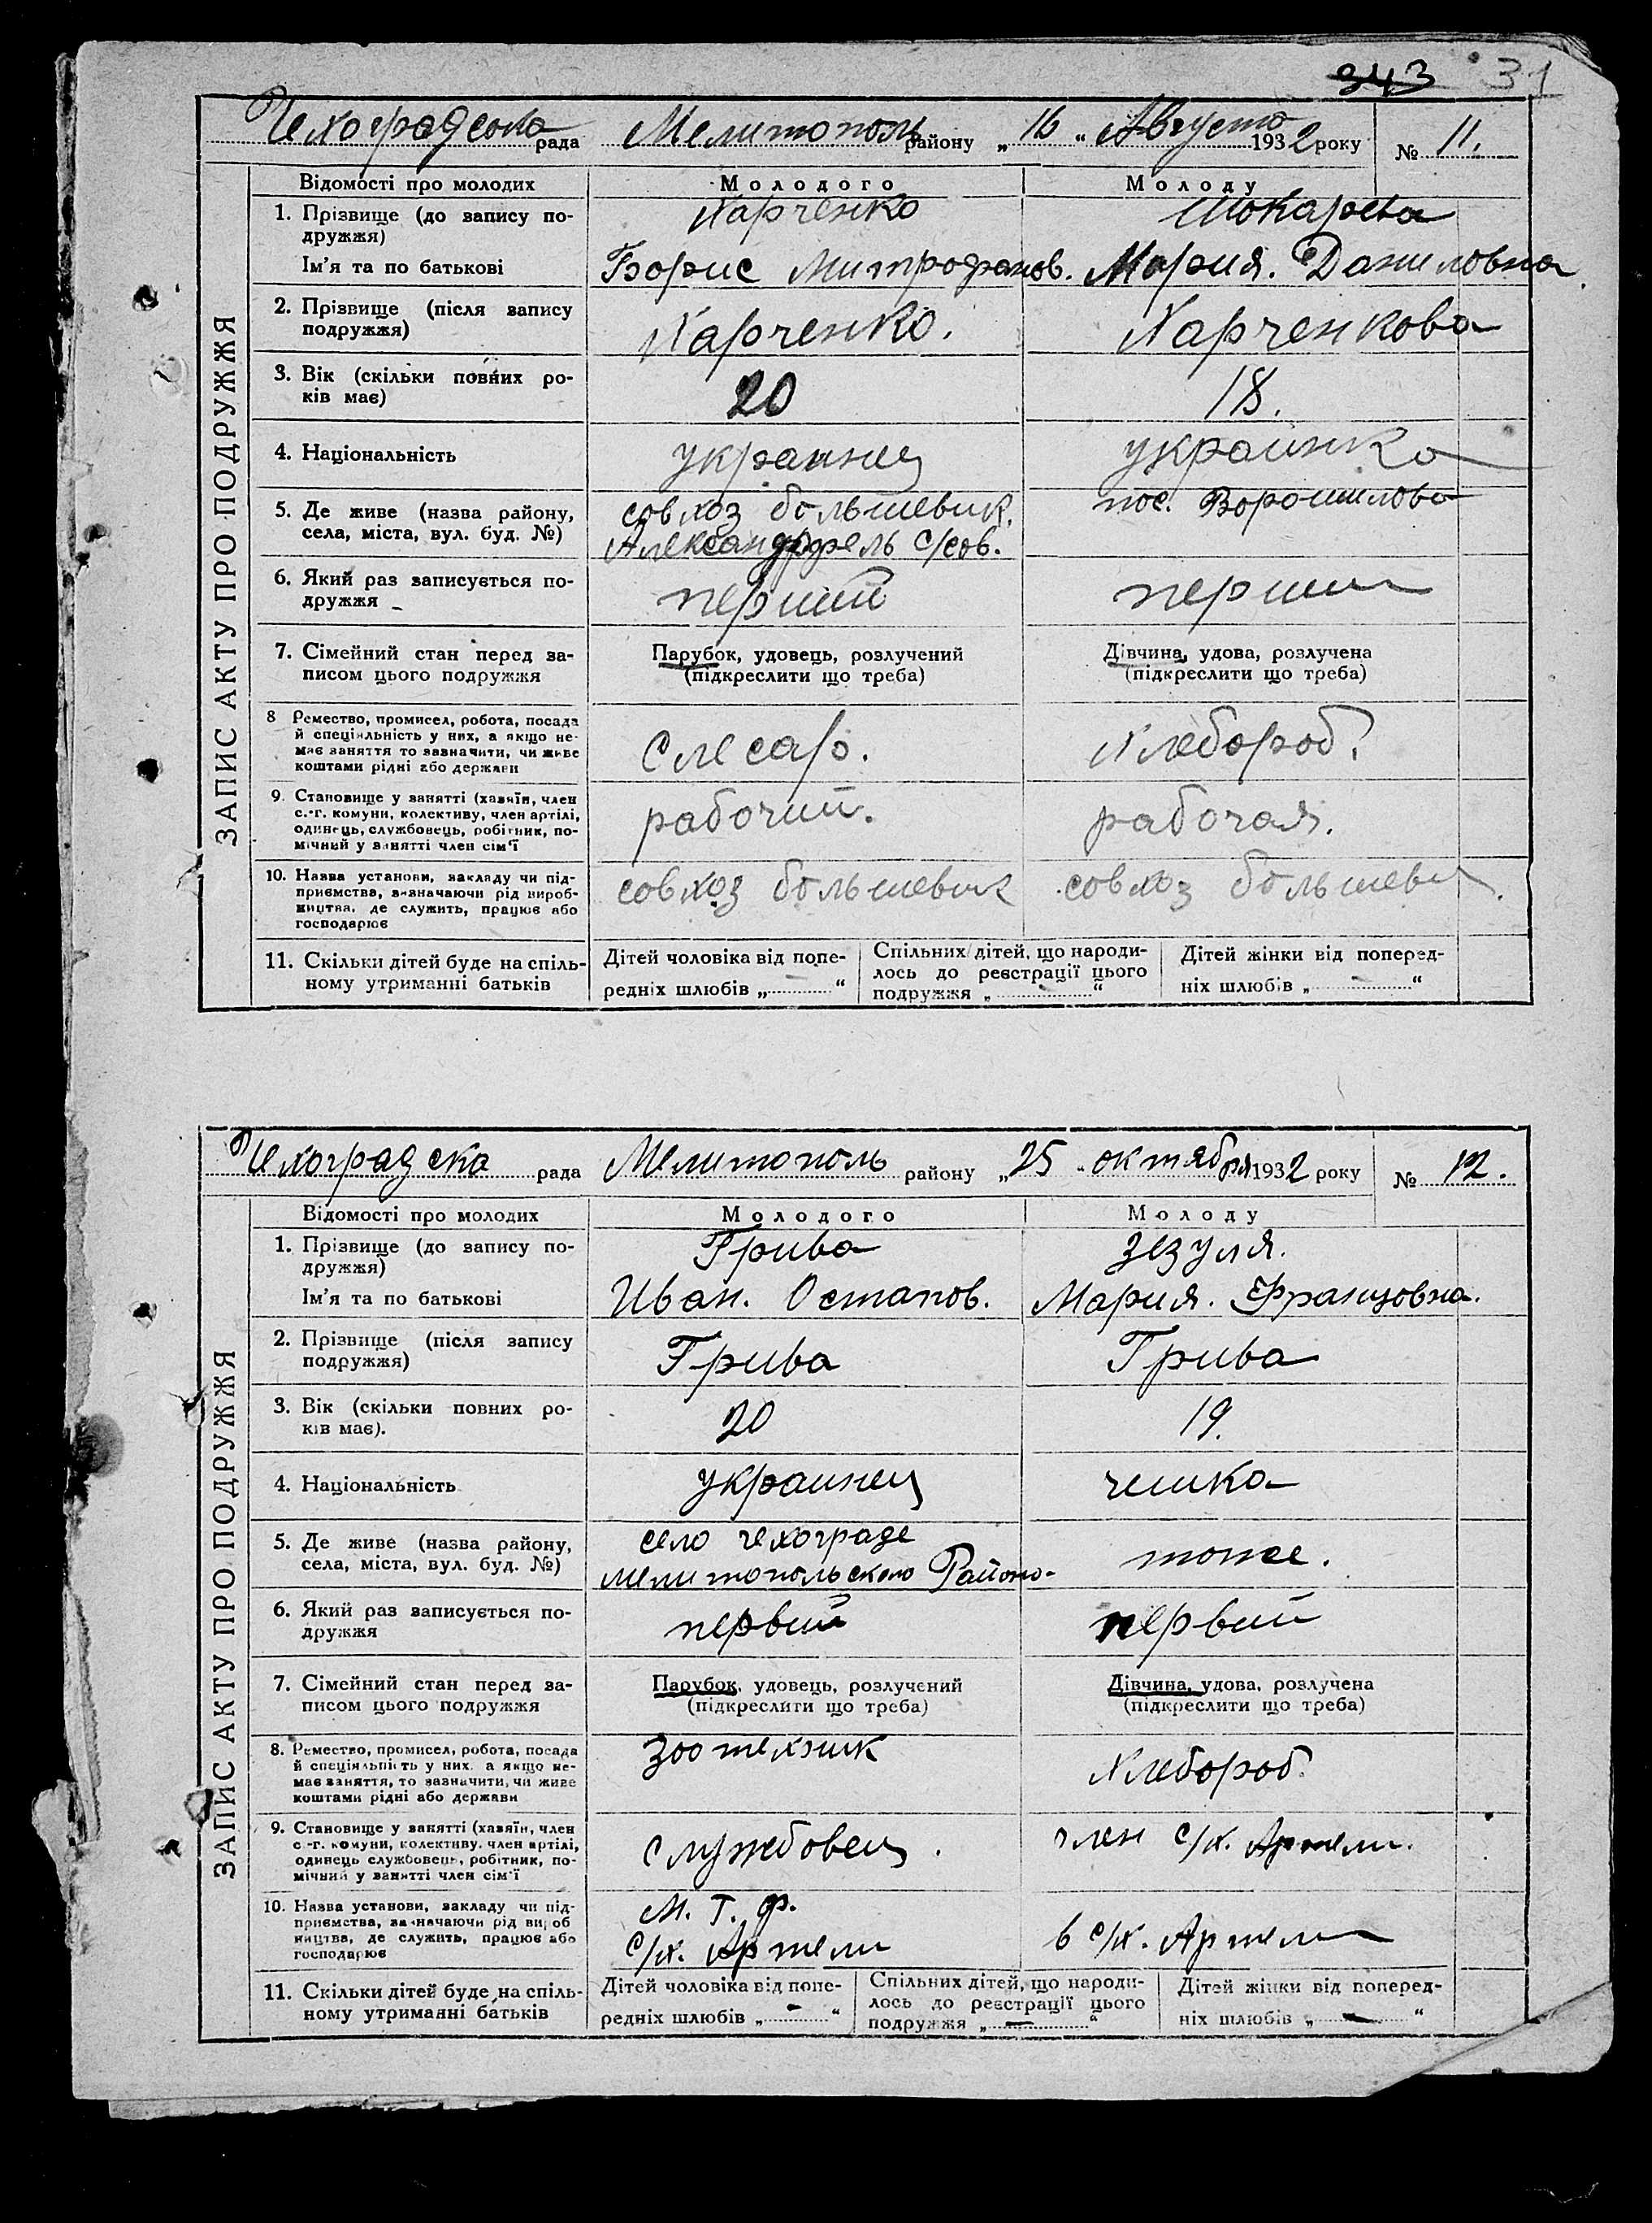 343 31
Чехоградська рада Мелитополь району „16“ Августа 1932 року № 11.
ЗАПИС АКТУ ПРО ПОДРУЖЖЯ
Відомості про молодих Молодого Молоду
1. Прізвище (до запису по- Харченко
дружжя)
Ім'я та по батькові Борис Митрофанов. Мария. Даниловна.
2. Прізвище (після запису Харченко. Харченкова
подружжя)
3. Вік (скільки повних ро- 20 18.
ків має)
4. Національність украинец украинка
5. Де живе (назва району, совхоз большевик. пос. Ворошилова
села, міста, вул. буд. №) Александрфель с/сов.
6. Який раз записується по- перший перший
дружжя
7. Сімейний стан перед за- Парубок, удовець, розлучений Дівчина, удова, розлучена
писом цього подружжя (підкреслити що треба) (підкреслити що треба)
8 Ремество, промисел, робота, посада
й спеціяльність у них, а якщо не- Слесарь. Хлебороб.
має заняття то зазначити, чи живе
коштами рідні або держави
9. Становище у занятті (хазяїн, член
с.-г. комуни, колективу, член артілі, рабочий. рабочая.
одинець, службовець, робітник, по-
мічний у занятті член сім'ї
10. Назва установи, закладу чи під- совхоз большевик совхоз большевик.
приємства, зазначаючи рід вироб-
ництва, де служить, працює або
господарює
11. Скільки дітей буде на спіль- Дітей чоловіка від попе- Спільних дітей, що народи- Дітей жінки від поперед-
ному утриманні батьків редніх шлюбів „ — “ лось до реєстрації цього подружжя „ — “ ніх шлюбів „ — “
Чехоградска рада Мелитополь району „25“ октября 1932 року № 12.
ЗАПИС АКТУ ПРО ПОДРУЖЖЯ
Відомості про молодих Молодого Молоду
1. Прізвище (до запису по- Грива Зезуля.
дружжя)
Ім'я та по батькові Иван. Остапов. Мария. Францовна.
2. Прізвище (після запису Грива Грива
подружжя)
3. Вік (скільки повних ро- 20 19.
ків має).
4. Національність украинец чешка
5. Де живе (назва району, село чехограде тоже.
села, міста, вул. буд. №) мелитопольского Района-
6. Який раз записується по- первий первий
дружжя
7. Сімейний стан перед за- Парубок, удовець, розлучений Дівчина, удова, розлучена
писом цього подружжя (підкреслити що треба) (підкреслити що треба)
8. Ремество, промисел, робота, посада зоотехник Хлебороб.
й спеціяльність у них, а якщо не-
має заняття, то зазначити, чи живе
коштами рідні або держави
9. Становище у занятті (хазяїн, член
с.-г. комуни, колективу, член артілі, службовец. член с/х. Артели.
одинець службовець, робітник, по-
мічний у занятті член сім'ї
10. Назва установи, закладу чи під- М. Т. Ф.
приємства, зазначаючи рід вироб
ництва, де служить, працює або с/х. Артели в с/х. Артели
господарює
11. Скільки дітей буде на спіль- Дітей чоловіка від попе- Спільних дітей, що народи- Дітей жінки від поперед-
ному утриманні батьків редніх шлюбів „ — “ лось до реєстрації цього подружжя „ — “ ніх шлюбів „ — “